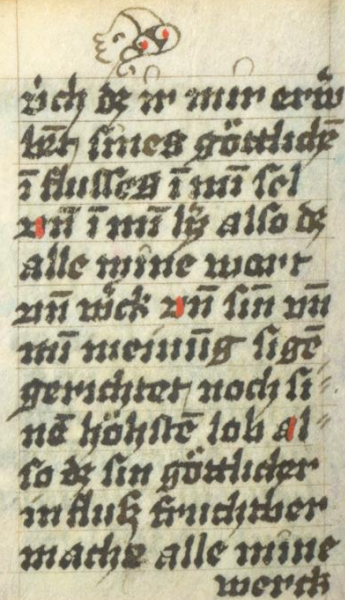 v́ch dz ir mir erẘ
bēt sines göttlichē
ī flusses ī mī sel
vn̄ ī mī lib also dz
alle mine wort
vn̄ wĕck vn̄ sin vn̄
mī meinūg sigē
gerichtet noch si⸗
nē höhstē lob al⸗
so dz sin göttlicher
influß fruchtber
mache alle mine
werck